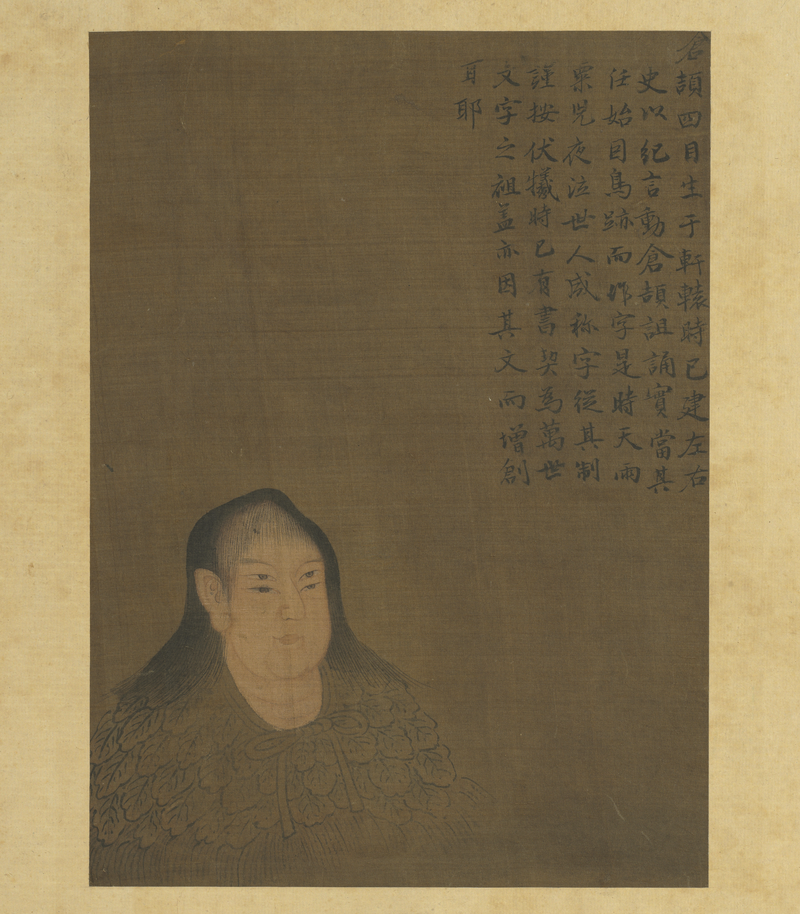 倉頡四目生于軒轅時已建左右
史以紀言動倉頡詛誦實當其
任始因鳥跡而作字是時天雨
粟鬼夜泣世人咸称字從其制
謹按伏犧時已有書契為萬世
文字之祖蓋亦因其文而增創
耳耶